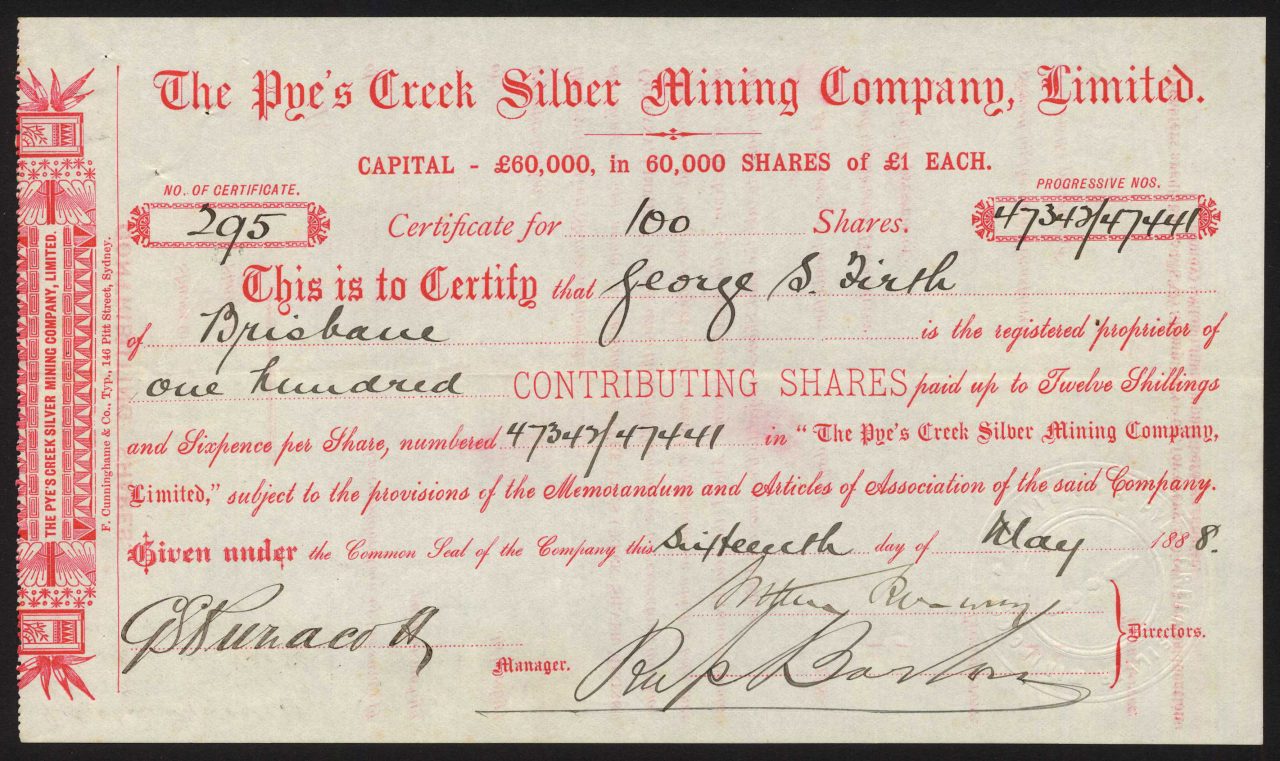 The Pye's Creek Silver Mining Company, Limited.
CAPITAL - £60,000, in 60,000 SHARES of £1 EACH.
NO. OF CERTIFICATE.
295
Certificate for 100 Shares.
PROGRESSIVE NOS.
47342/47441
This is to Certify that George S. Firth
of Brisbane is the registered proprietor of
one hundred CONTRIBUTING SHARES paid up to Twelve Shillings
and Sixpence per Share, numbered 47342/47441 in "The Pye's Creek Silver Mining Company,
Limited," subject to the provisions of the Memorandum and Articles of Association of the said Company.
Given under the Common Seal of the Company this Sixteenth day of May 1888.
Manager.
Directors.
THE PYE'S CREEK SILVER MINING COMPANY, LIMITED.
F. Cunninghame & Co., Typ., 146 Pitt Street, Sydney.